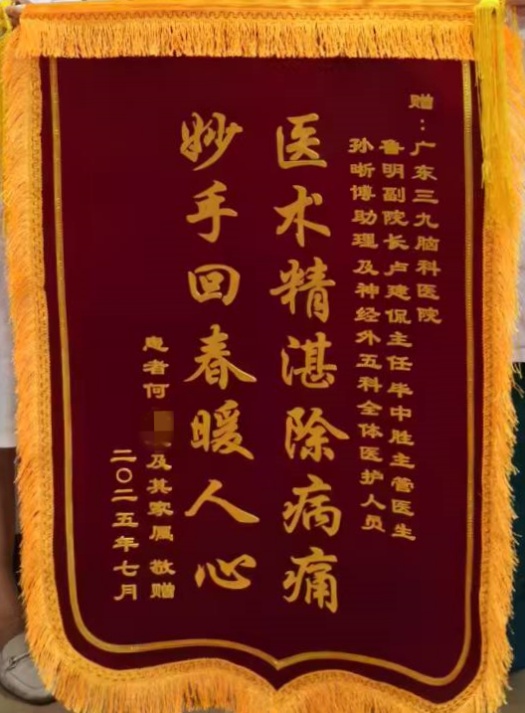 赠：广东三九脑科医院
鲁明副院长卢建侃主任毕中胜主管医生
孙昕博助理及神经外五科全体医护人员
医术精湛除病痛
妙手回春暖人心
患者何 及其家属 敬赠
二〇二五年七月